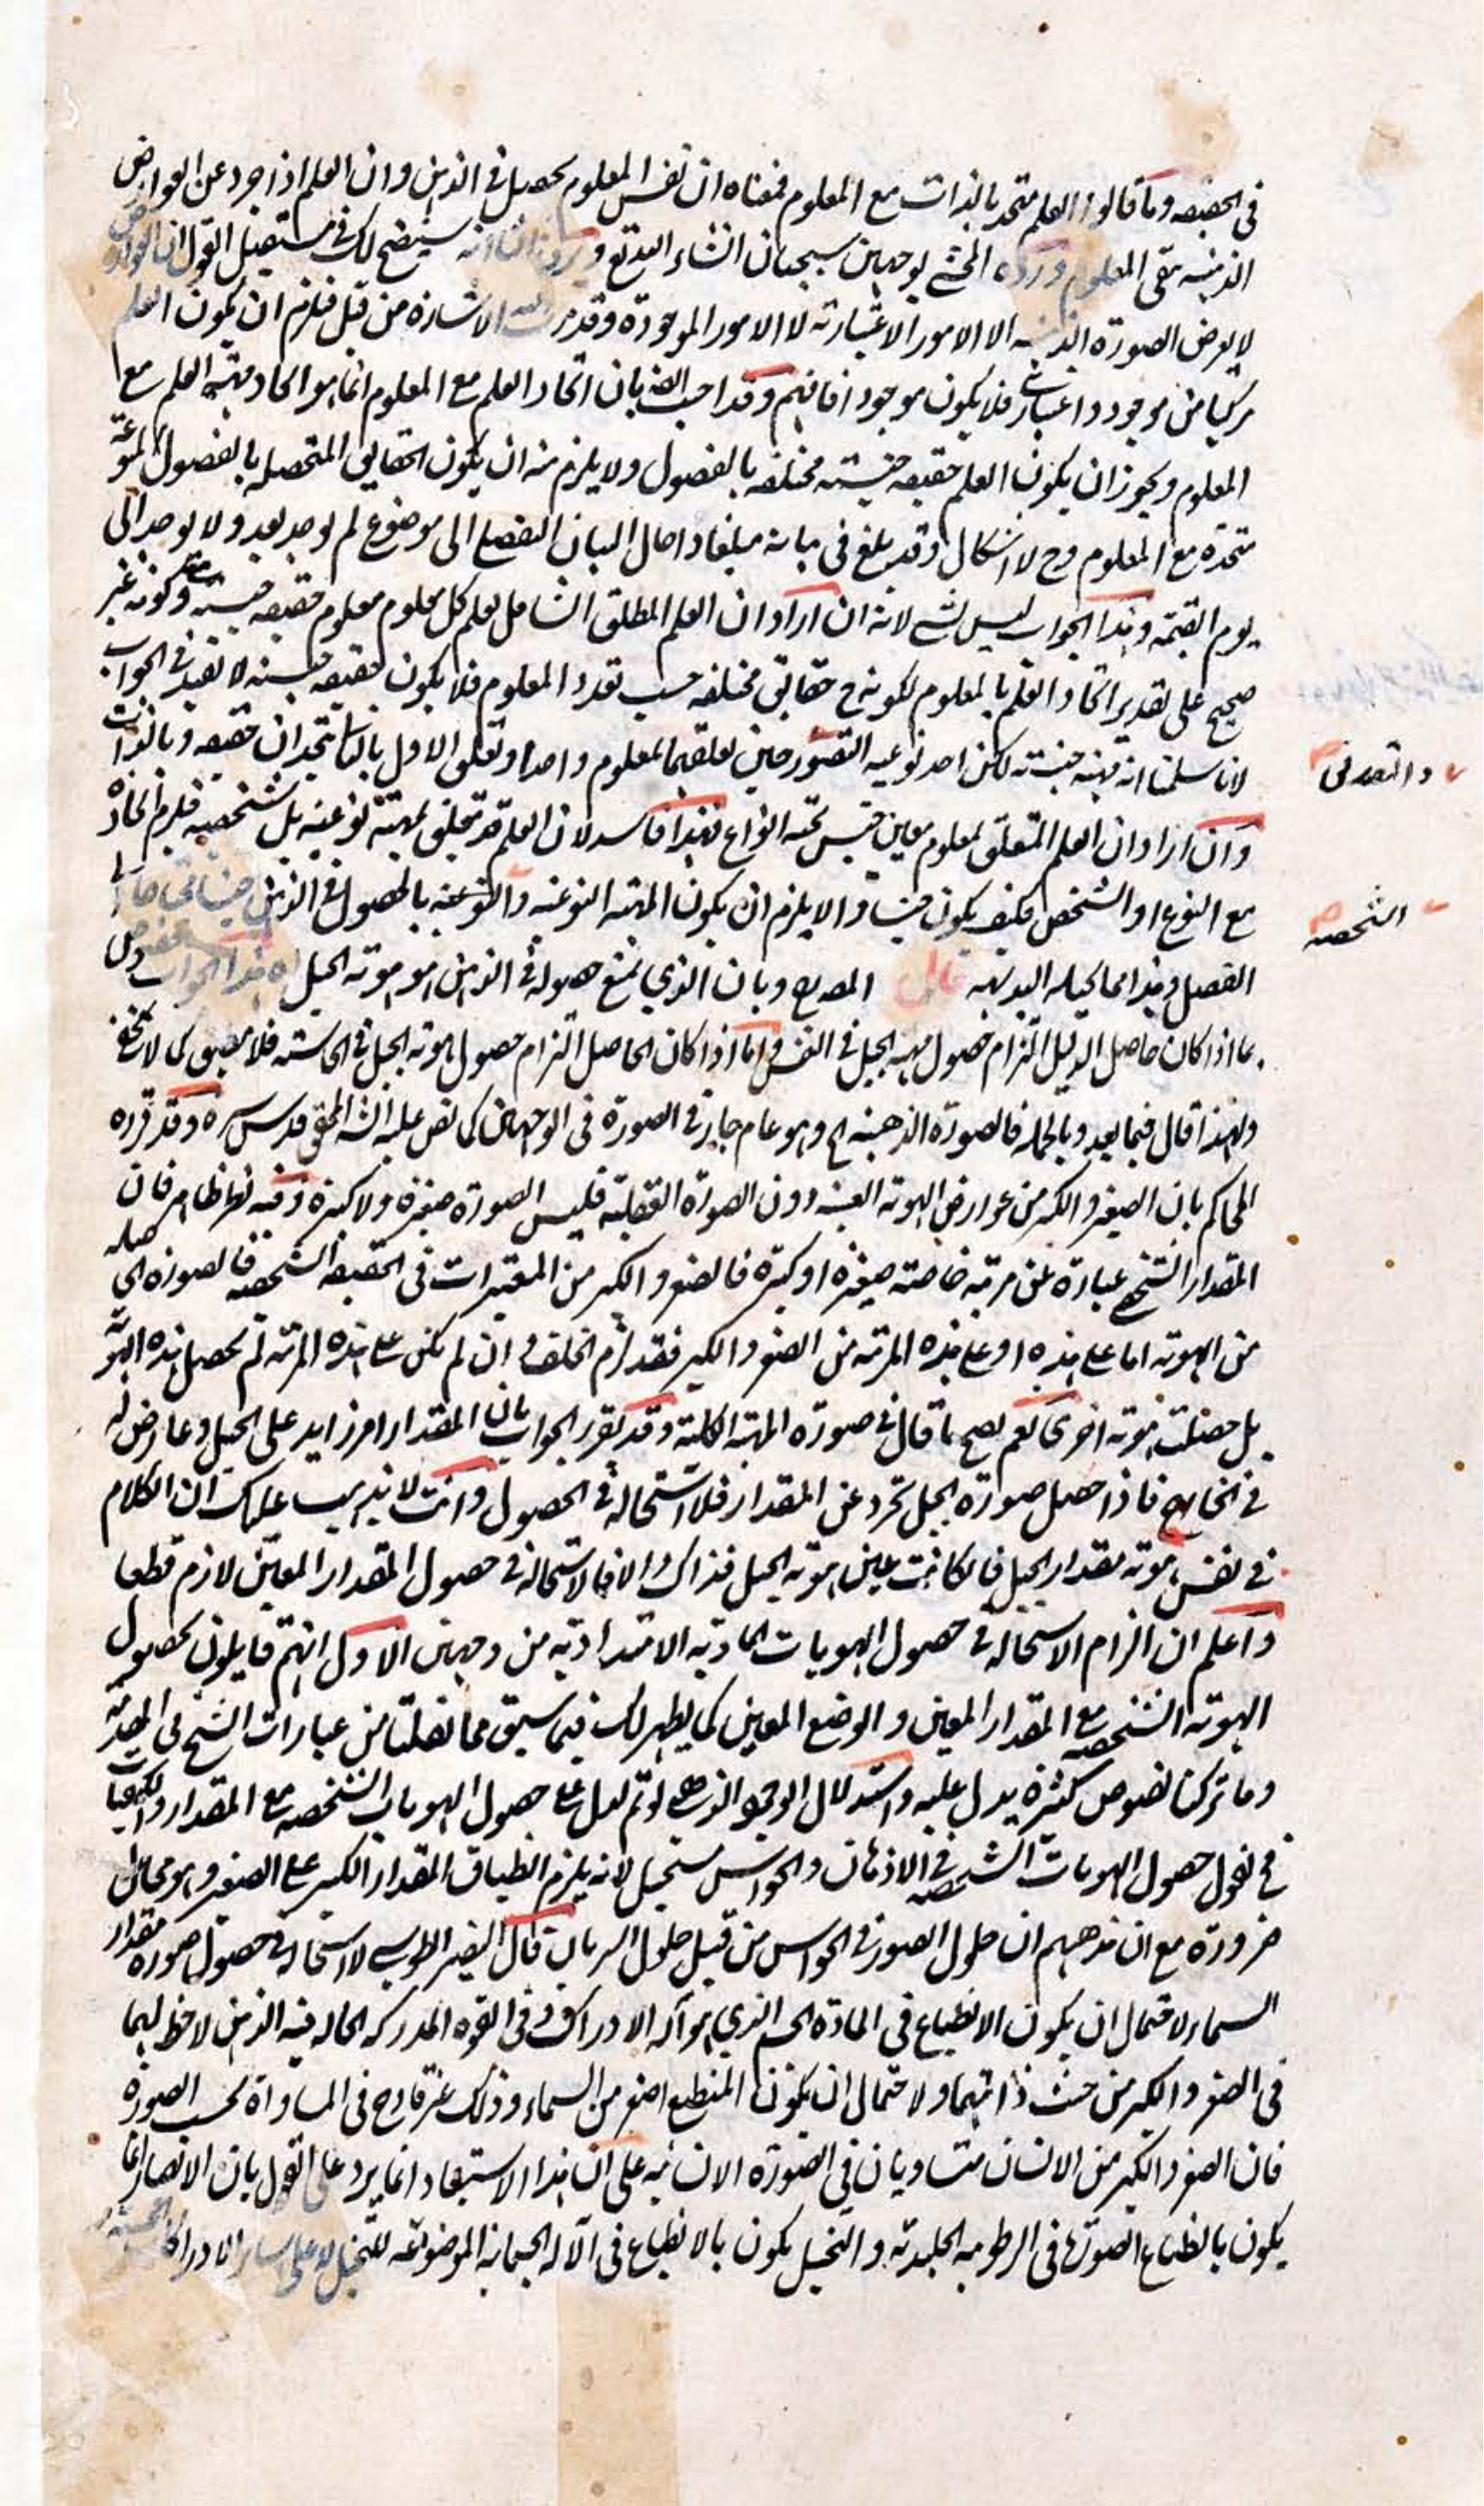 في الحقيقه وما قالوا العلم متحد بالذات مع المعلوم فمعناه ان نفس المعلوم يحصل في الذهن وان العلم اذا جرد عن العوارض
الذهنيه بقي المعلوم ورده المحشي بوجهين سيجيئان انشاء الله تع و سيتضح لك في مستقبل القول ان العوارض
لا يعرض الصورة الذهنيه الا الامور الاعتبارية لا الامور الموجودة وقد مرت الاشارة من قبل فلزم ان يكون العلم
مركبا من موجود واعتباري فلا يكون موجودا فافهم وقد اجيب ايضا بان اتحاد العلم مع المعلوم انما هو اتحاد مهية العلم مع
المعلوم ويجوز ان يكون العلم حقيقه جنسيته مختلفه بالفصول ولا يلزم منه ان يكون الحقايق المتحصله بالفصول المنوعة
متحده مع المعلوم وح لا اشكال وقد بلغ في بيانه مبلغا واحال البيان التفصيلي الى موضع لم يوجد بعد ولا يوجد الى
يوم القيمه وهذا الجواب ليس بشي لانه ان اراد ان العلم المطلق الشامل لعلم كل معلوم معلوم حقيقه جنسيه وكونه غير
صحيح على تقدير اتحاد العلم بالمعلوم لكونه ح حقايق مختلفه حسب تعدد المعلوم فلا يكون حقيقه جنسيه لا تفيد في الجواب
لانا سلمنا انه مهيه جنسيته لكن احد نوعيه التصور حين تعلقهما بمعلوم واحد او تعلق الاول بالثاني يتحدان حقيقه وبالذات
والتصديق
وان اراد ان العلم المتعلق بمعلوم معين جنس تحته انواع فهذا فاسد لان العلم قد يتعلق بمهية نوعية بل شخصيه فلزم اتحاده
مع النوع او الشخص فكيف يكون جنسا والا يلزم ان يكون المهيه النوعيه والنوعيه بالحصول في الذهن جنسا محتاجا الى
الشخصيه
الفصل وهذا مما يحيله البديهه قال المص وبان الذي يمنع حصوله في الذهن هو هوية الجبل اه هذا الجواب مخصوص
بما اذا كان حاصل الدليل التزام حصول مهية الجبل في النفس واما اذا كان الحاصل التزام حصول هوية الجبل في الحاسته فلا ينطبق كما لا يخفى
ولهذا قال فيما بعد وبالجمله فالصورة الذهنية الخ وهو عام جار في الصورة في الوجهين كما نص عليه الش المحقق قدس سره وقد قرره
المحاكم بان الصغير والكبر من عوارض الهوية العينيه دون الصورة العقلية فليس الصورة صغيرة ولا كبيرة وفيه نظر ظاهر فان
المقدار الشخصي عبارة عن مرتبه خاصته صغيره او كبيرة فالصغر والكبر من المعتبرات في الحقيقه الشخصيه فالصورة الحاصله
من الهوية اما على هذه او على هذه المرتبه من الصغر والكبر فقد لزم الخلف وان لم يكن على هذه المرتبه لم يحصل هذه الهوية
بل حصلت هوية اخرى نعم يصح ما قال في صورة المهية الكلية وقد يقرر الجواب بان المقدار امر زايد على الجبل وعارض له
في الخارج فاذا حصل صورة الجبل تجرد عن المقدار فلا استحالة في الحصول وانت لا يذهب عليك ان الكلام
في نفس هوية مقدار الجبل فان كانت عين هوية الجبل فذاك والا فالاستحالة في حصول المقدار المعين لازم قطعا
واعلم ان الزام الاستحالة في حصول الهويات المادية الامتدادية من وجهين الاول انهم قايلون بحصول
الهوية الشخصيه مع المقدار المعين والوضع المعين كما يظهر لك فيما سبق مما نقلنا من عبارات الشيخ في المقدمة
وما تركنا نصوص كثيره يدل عليه واستدلال الوجود الذهني لو تم لدل على حصول الهويات الشخصيه مع المقدار والكيفيات
فح نقول حصول الهويات الشخصيه في الاذهان والحواس مستحيل لانه يلزم انطباق المقدار الكبير على الصغير وهو محال
ضرورة مع ان مذهبهم ان حلول الصور في الحواس من قبيل حلول السريان قال النصير الطوسي لا استحالة في حصول صورة مقدار
السماء لاحتمال ان يكون الانطباع في المادة الجسم الذي هو آلة الادراك وفي القوه المدركه الحاله فيه الذين لا حظ لهما
في الصغر والكبر من حيث ذاتيهما ولاحتمال ان يكون المنطبع اصغر من السماء وذلك غير قادح في المساواة بحسب الصورة
فان الصغر والكبر من الانسان متساويان في الصورة الانسانيه على ان هذا الاستبعاد انما يرد على القول بان الابصار انما
يكون بالطباع الصورة في الرطوبه الجليديه والتخيل يكون بالانطباع في الآله الجسمانيه الموضوعه للتخيل لا على ساير الادراكات